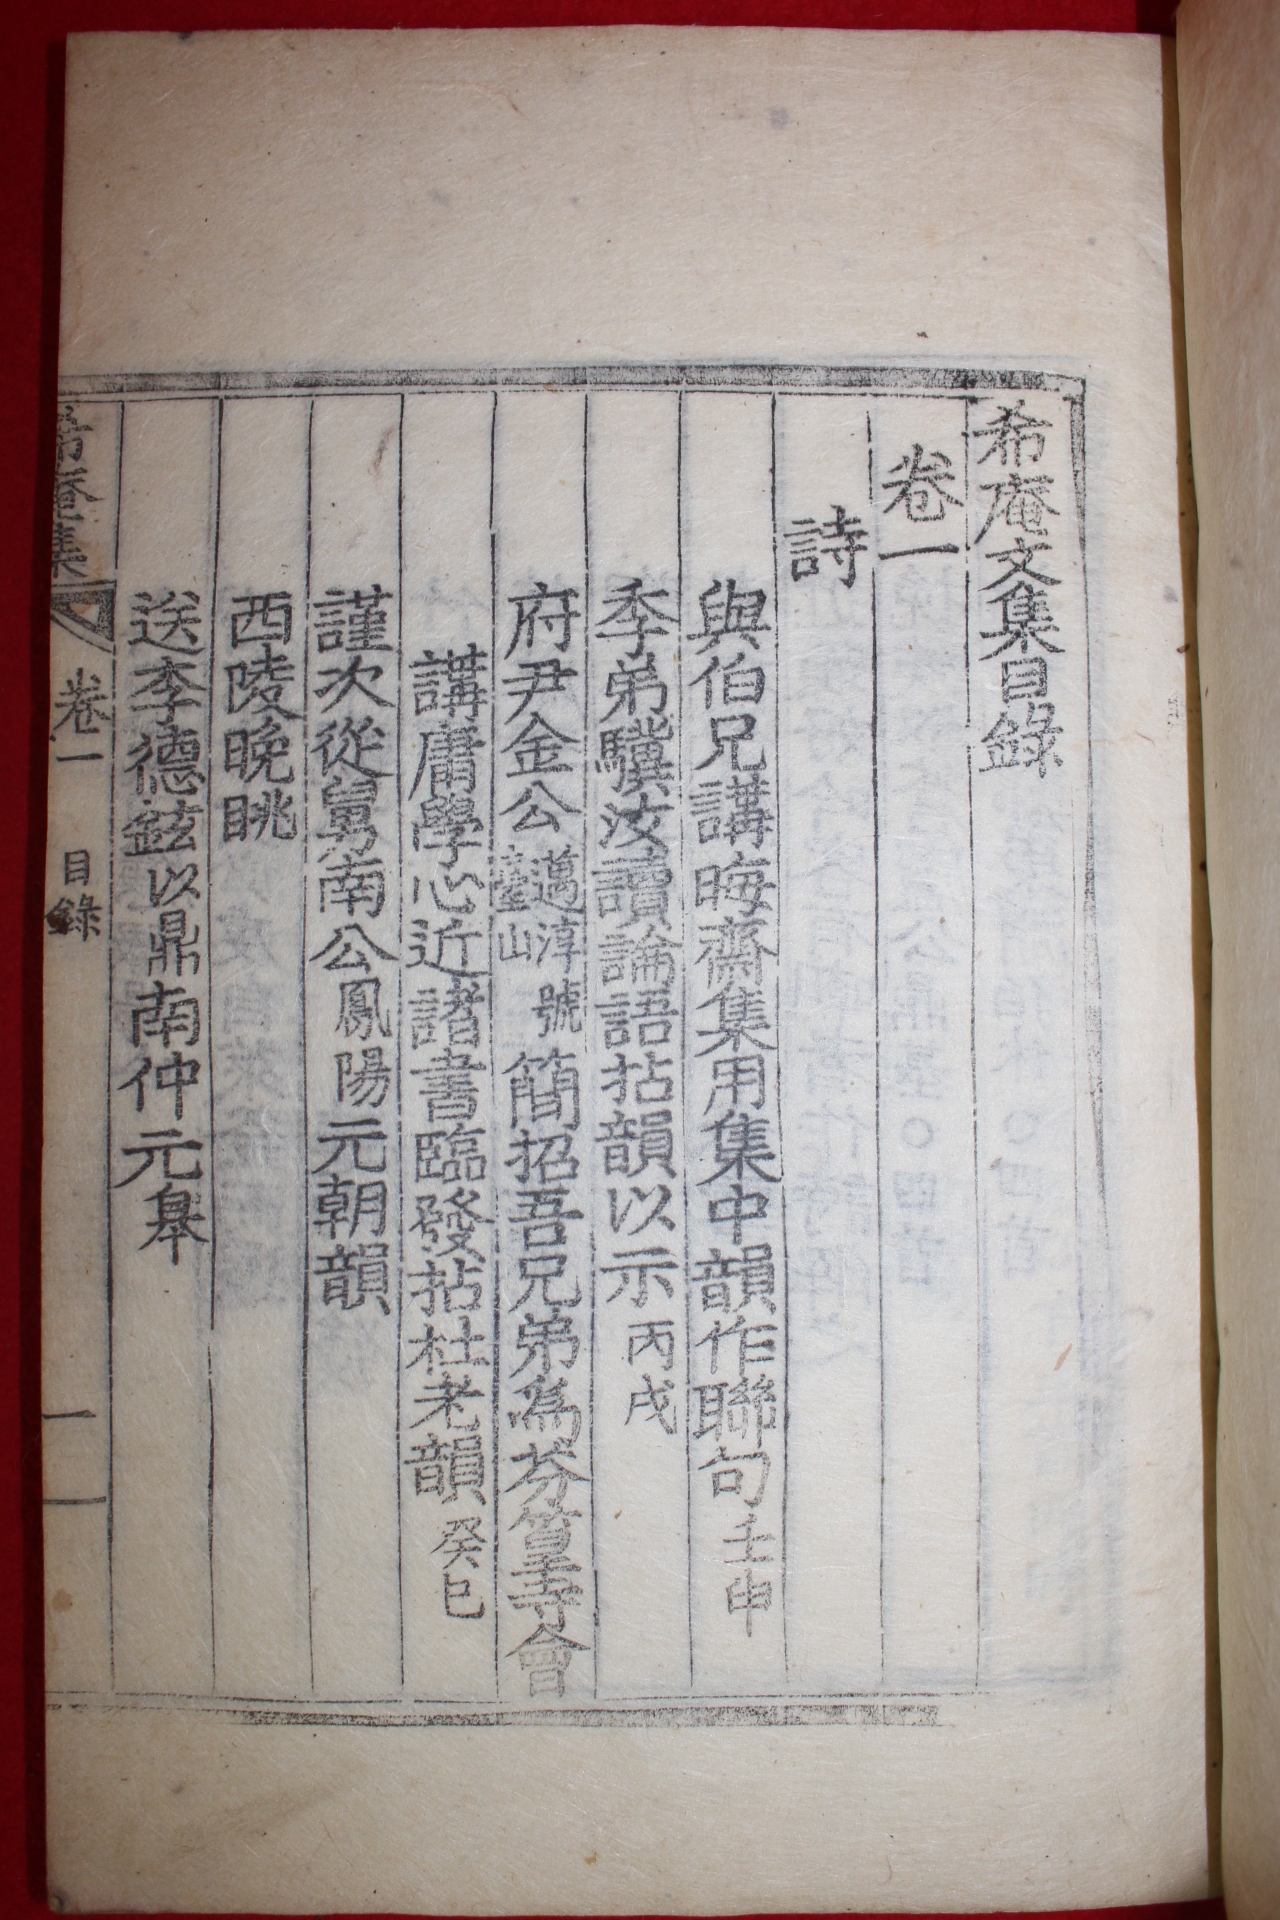 希庵文集目錄
卷一
詩
與伯兄講晦齋集用集中韻作聯句 壬申
季弟驥汝讀論語拈韻以示 丙戌
府尹金公 邁淳號臺山 簡招吾兄弟爲芬篁寺會
講庸學心近諸書臨發拈杜老韻 癸巳
謹次從舅南公 鳳陽 元朝韻
西陵晚眺
送李德鉉 以鼎 南仲元 皐
希庵集 卷一 目錄 一